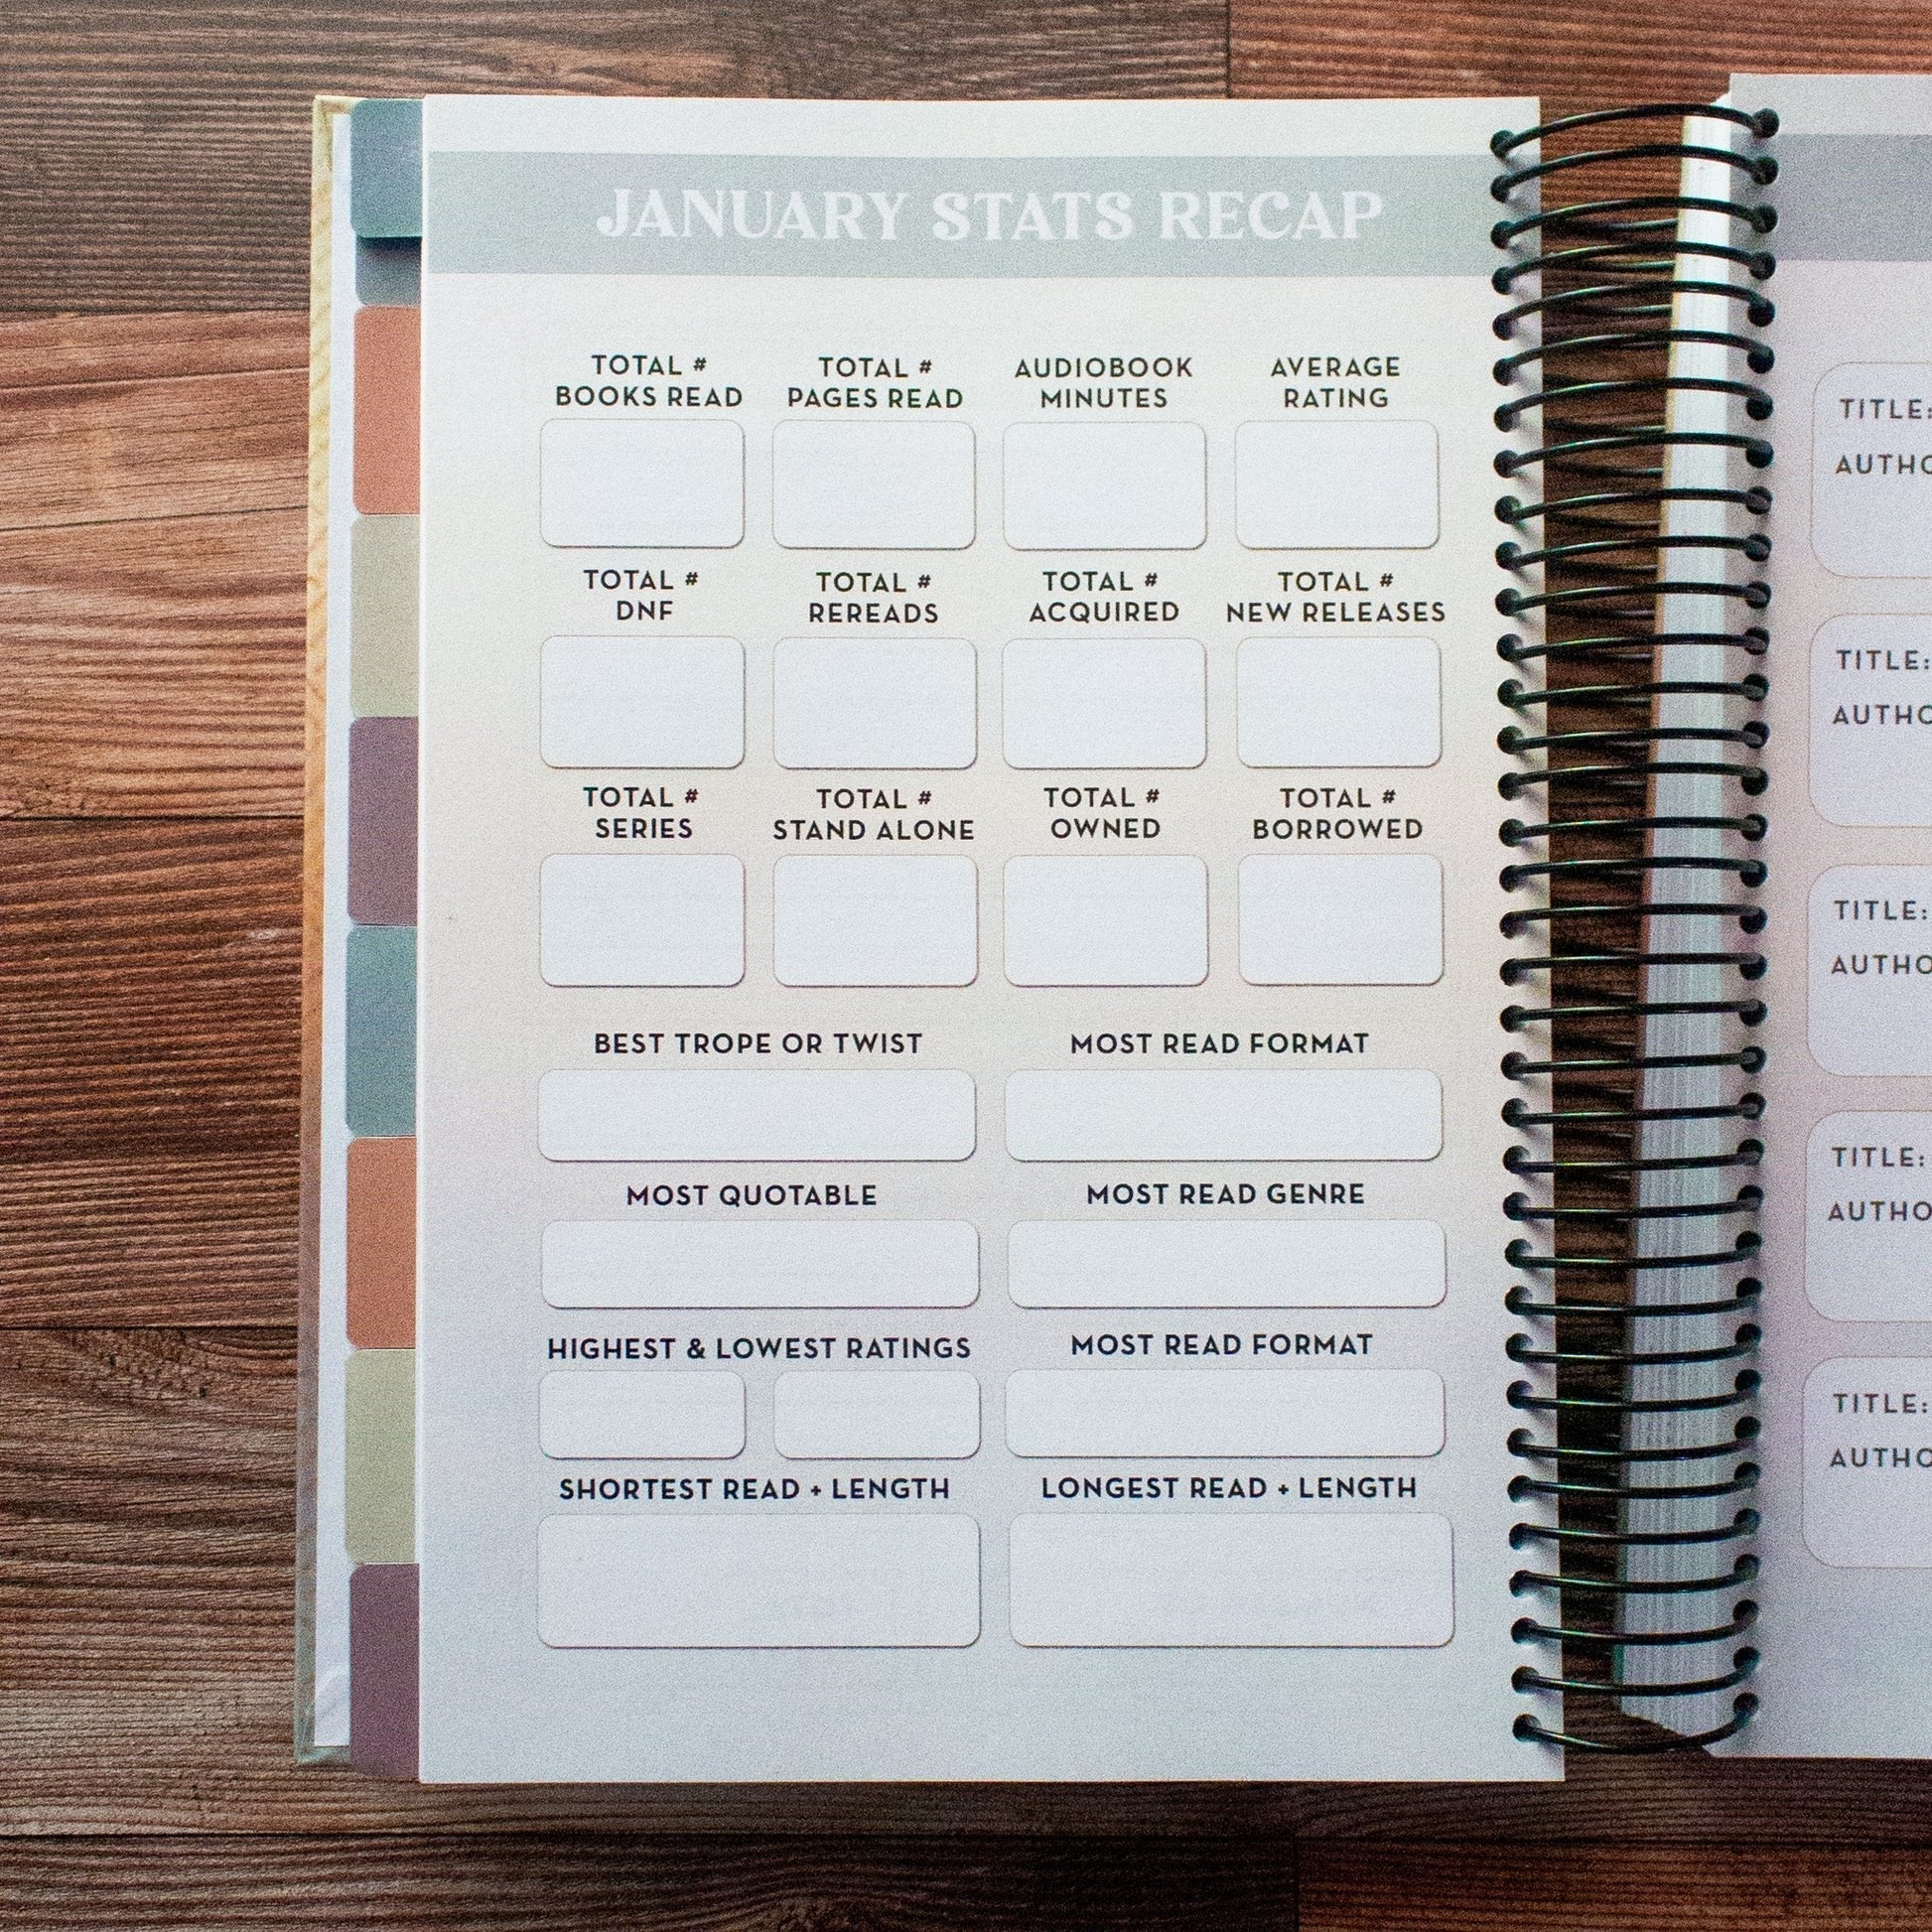 JANUARY STATS RECAP
TOTAL #
BOOKS READ
TOTAL #
PAGES READ
AUDIOBOOK
MINUTES
AVERAGE
RATING
TOTAL #
DNF
TOTAL #
REREADS
TOTAL #
ACQUIRED
TOTAL #
NEW RELEASES
TOTAL #
SERIES
TOTAL #
STAND ALONE
TOTAL #
OWNED
TOTAL #
BORROWED
BEST TROPE OR TWIST
MOST READ FORMAT
MOST QUOTABLE
MOST READ GENRE
HIGHEST & LOWEST RATINGS
MOST READ FORMAT
SHORTEST READ + LENGTH
LONGEST READ + LENGTH
TITLE:
TITLE:
TITLE:
TITLE:
TITLE: